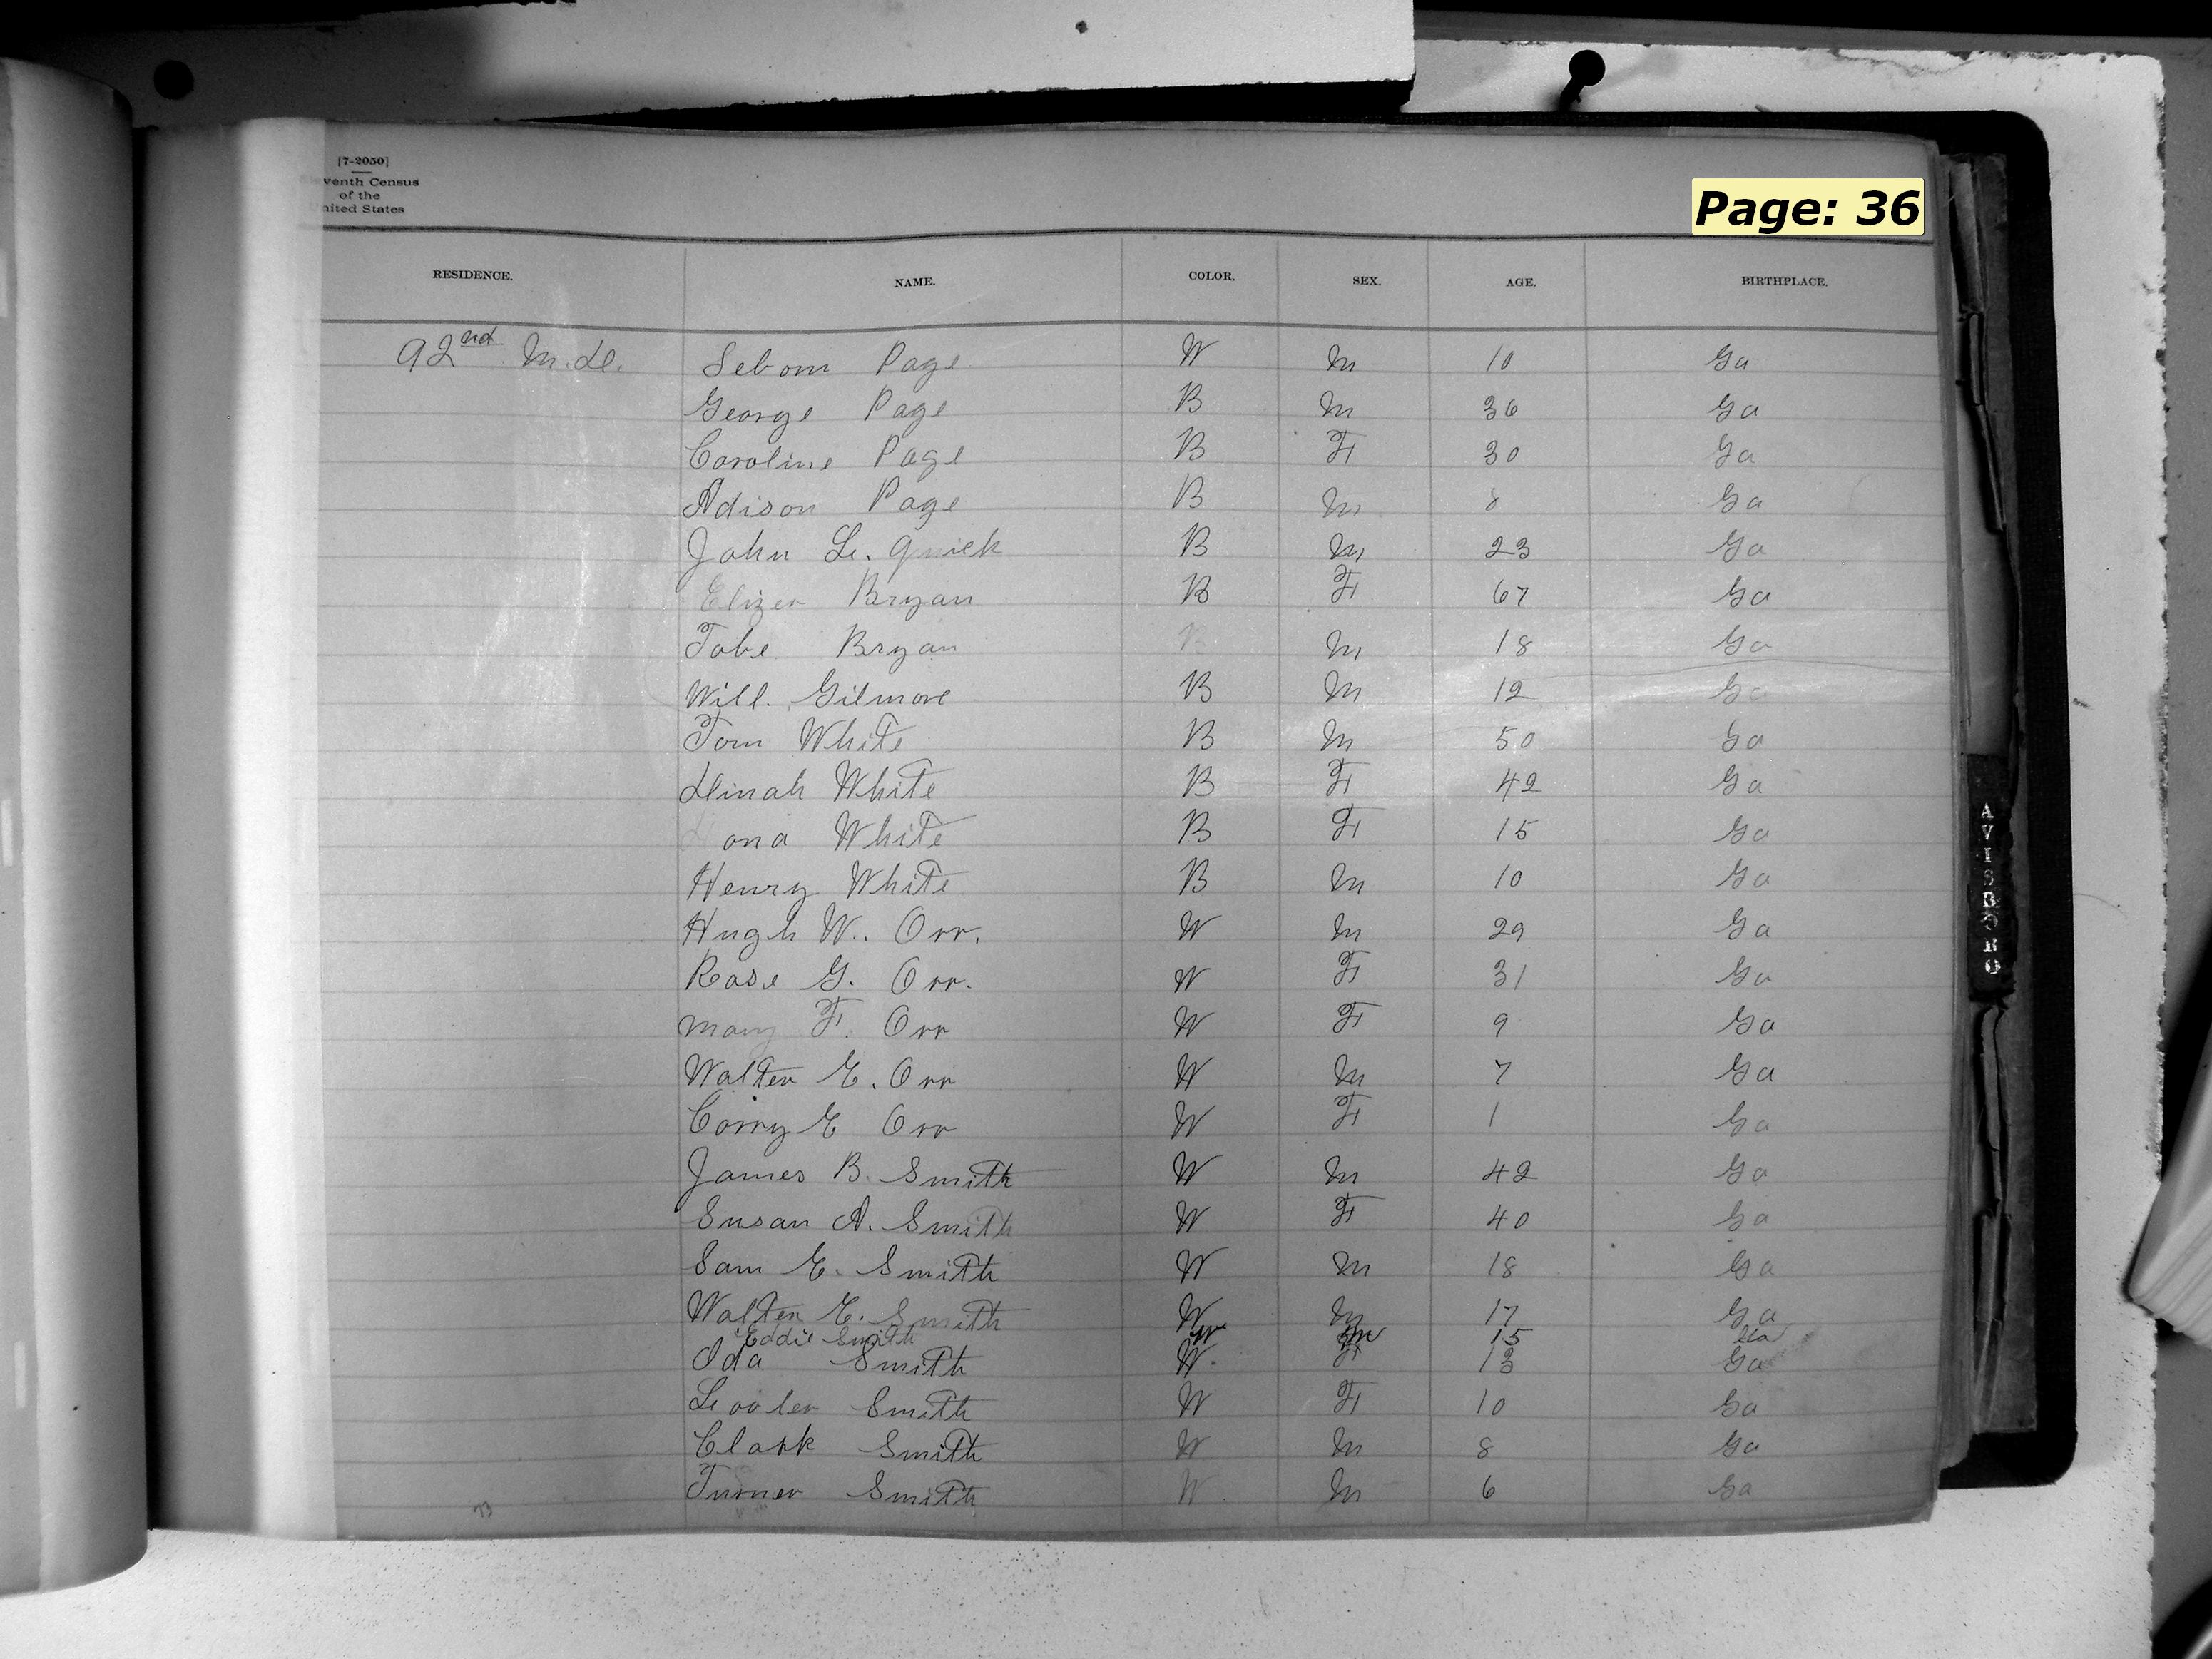 [7-2050]
Eleventh Census
of the
United States
Page: 36
RESIDENCE. NAME. COLOR. SEX. AGE. BIRTHPLACE.
92nd M.D. Seborn Page W M 10 Ga
George Page B M 36 Ga
Caroline Page B F 30 Ga
Adison Page B M 8 Ga
John L. Quick B M 23 Ga
Elizer Bryan B F 67 Ga
Tobe Bryan B M 18 Ga
Will. Gilmore B M 12 Ga
Tom White B M 50 Ga
Dinah White B F 42 Ga
ona White B F 15 Ga
Henry White B M 10 Ga
Hugh W. Orr. W M 29 Ga
Rose G. Orr. W F 31 Ga
Mary F. Orr W F 9 Ga
Walter E. Orr W M 7 Ga
Corry E Orr W F 1 Ga
James B. Smith W M 42 Ga
Susan A. Smith W F 40 Ga
Sam E. Smith W M 18 Ga
Walter E. Smith W M 17 Ga
Eddie Smith W M 15 Ga
Ida Smith W. F 13 Ga
Smith W F 10 Ga
Clark Smith W M 8 Ga
Turner Smith W M 6 Ga
AVISBORO